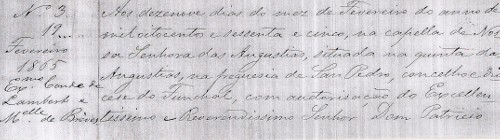 N.º 3
19...
Fevereiro
1865
Ex.mo Conde de
Lambert e
M.elle de Brèves
Aos dezenove dias do mez de Fevereiro do anno de
mil oitocentos e sessenta e cinco, na capella de Nos
sa Senhora das Angustias, situada na quinta das
Angustias, na freguesia de San Pedro, concelho e dio
cese do Funchal, com autorisação do Excellen
tissimo e Reverendissimo Senhor Dom Patricio